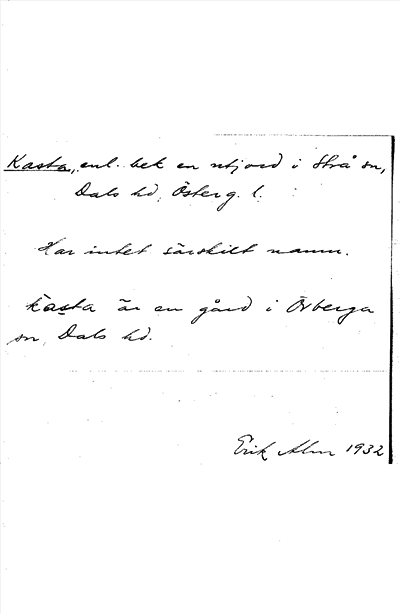 Kasta, enl. bek en utjord i Strå sn,
Dals hd, Österg. l.
Har intet särskilt namn.
Kasta är en gård i Örberga
sn, Dals hd.
Erik Alm 1932